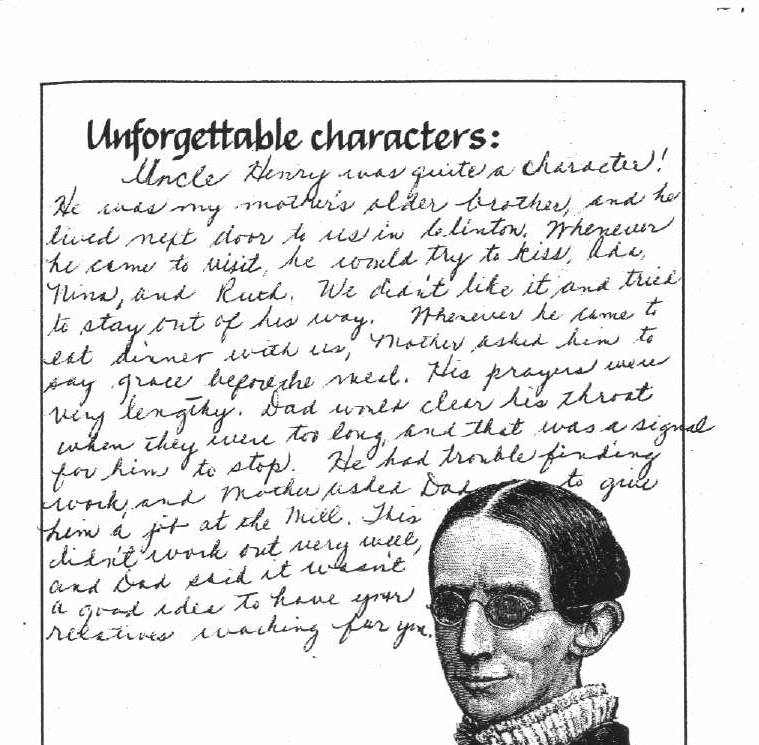 Unforgettable characters:
Uncle Henry was quite a character!
He was my mother's older brother, and he
lived next door to us in Clinton. Whenever
he came to visit, he would try to kiss, Ada,
Nina, and Ruth. We didn't like it and tried
to stay out of his way. Whenever he came to
eat dinner with us, Mother asked him to
say grace before the meal. His prayers were
very lengthy. Dad would clear his throat
when they were too long, and that was a signal
for him to stop. He had trouble finding
work, and Mother asked Dad to give
him a job at the Mill. This
didn't work out very well,
and Dad said it wasn't
a good idea to have your
relatives working for you.